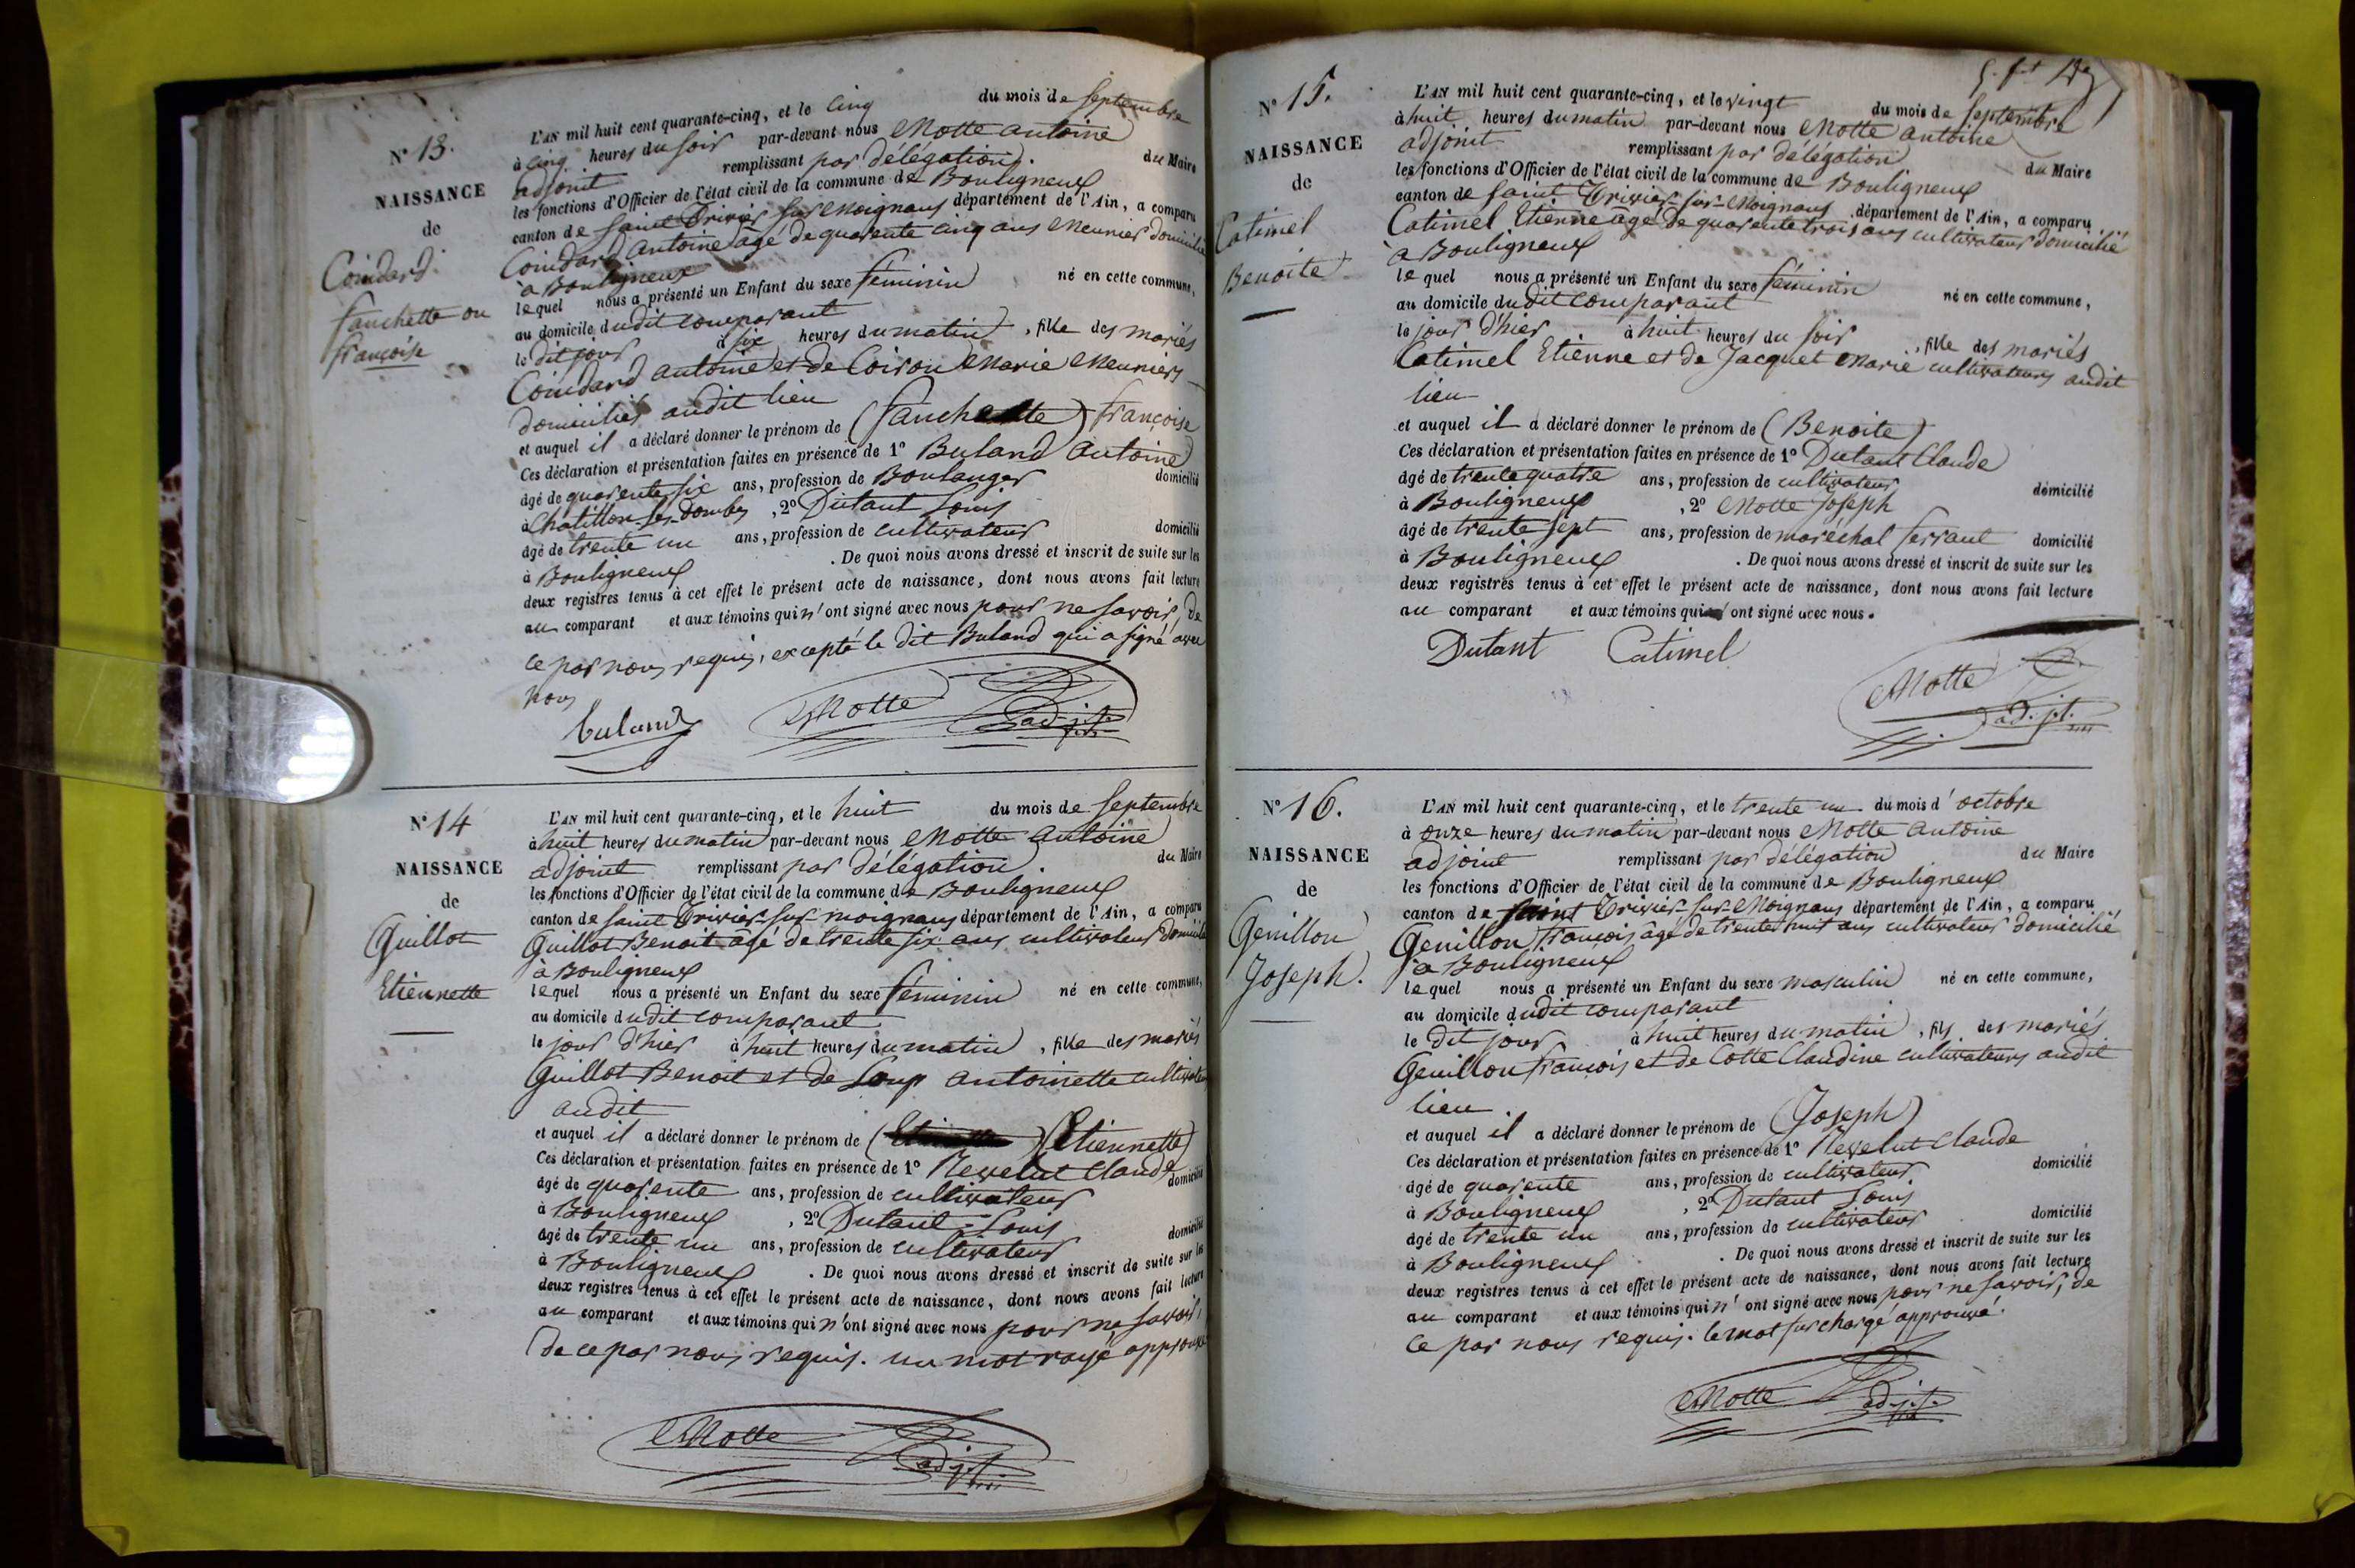 N° 13.
NAISSANCE
de
Coindard
fanchette ou
françoise
L'AN mil huit cent quarante-cinq, et le cinq du mois de Septembre
à cinq heures du soir par-devant nous Motte antoine
adjoint remplissant par délégation du Maire
les fonctions d'Officier de l'état civil de la commune de Bouligneux
canton de saint Trivier sur Moignans département de l'Ain, a comparu
Coindard antoine âgé de quarente cinq ans Meunier domicilié
à Bouligneux
lequel nous a présenté un Enfant du sexe féminin né en cette commune,
au domicile dudit comparant
le dit jour à six heures du matin, fille des mariés
Coindard antoine et de Coison Marie Meuniers
domiciliés audit lieu
et auquel il a déclaré donner le prénom de (fanchette) françoise
Ces déclaration et présentation faites en présence de 1° Buland antoine
âgé de quarente six ans, profession de Boulanger domicilié
à Chatillon-les-Dombes, 2° Dutant Louis
âgé de trente un ans, profession de cultivateur domicilié
à Bouligneux. De quoi nous avons dressé et inscrit de suite sur les
deux registres tenus à cet effet le présent acte de naissance, dont nous avons fait lecture
au comparant et aux témoins qui n'ont signé avec nous pour ne savoir, de
ce par nous requis, excepté le dit Buland qui a signé avec
nous
buland Motte adjt
N° 14
NAISSANCE
de
Guillot
Etiennette
L'AN mil huit cent quarante-cinq, et le huit du mois de Septembre
à huit heures du matin par-devant nous Motte antoine
adjoint remplissant par délégation du Maire
les fonctions d'Officier de l'état civil de la commune de Bouligneux
canton de saint Trivier-sur-moignans département de l'Ain, a comparu
Guillot Benoit âgé de trente six ans cultivateur domicilié
à Bouligneux
lequel nous a présenté un Enfant du sexe féminin né en cette commune,
au domicile dudit comparant
le jour d'hier à huit heures du matin, fille des mariés
Guillot Benoit et de Loup antoinette cultivateurs
audit
et auquel il a déclaré donner le prénom de (Etiennette)
Ces déclaration et présentation faites en présence de 1° Revelut Claude
âgé de quarente ans, profession de cultivateur domicilié
à Bouligneux, 2° Dutant Louis
âgé de trente un ans, profession de cultivateur domicilié
à Bouligneux. De quoi nous avons dressé et inscrit de suite sur les
deux registres tenus à cet effet le présent acte de naissance, dont nous avons fait lecture
au comparant et aux témoins qui n'ont signé avec nous pour ne savoir,
de ce par nous requis. un mot rayé approuvé
Motte adjt
N° 15.
NAISSANCE
de
Catimel
Benoite
L'AN mil huit cent quarante-cinq, et le vingt du mois de Septembre
à huit heures du matin par-devant nous Motte antoine
adjoint remplissant par délégation du Maire
les fonctions d'Officier de l'état civil de la commune de Bouligneux
canton de saint Trivier-sur-Moignans département de l'Ain, a comparu
Catimel Etienne âgé de quarente trois ans cultivateur domicilié
à Bouligneux
lequel nous a présenté un Enfant du sexe féminin né en cette commune,
au domicile dudit comparant
le jour d'hier à huit heures du soir, fille des mariés
Catimel Etienne et de Jacquet Marie cultivateurs audit
lieu
et auquel il a déclaré donner le prénom de (Benoite)
Ces déclaration et présentation faites en présence de 1° Dutant Claude
âgé de trente quatre ans, profession de cultivateur domicilié
à Bouligneux, 2° Motte Joseph
âgé de trente sept ans, profession de maréchal ferrant domicilié
à Bouligneux. De quoi nous avons dressé et inscrit de suite sur les
deux registres tenus à cet effet le présent acte de naissance, dont nous avons fait lecture
au comparant et aux témoins qui ont signé avec nous.
Dutant Catimel
Motte adjt.
N° 16.
NAISSANCE
de
Genillon
Joseph.
L'AN mil huit cent quarante-cinq, et le trente un du mois d'octobre
à onze heures du matin par-devant nous Motte antoine
adjoint remplissant par délégation du Maire
les fonctions d'Officier de l'état civil de la commune de Bouligneux
canton de saint Trivier-sur-Moignans département de l'Ain, a comparu
Genillon françois âgé de trente huit ans cultivateur domicilié
à Bouligneux
lequel nous a présenté un Enfant du sexe masculin né en cette commune,
au domicile dudit comparant
le dit jour à huit heures du matin, fils des mariés
Genillon françois et de Cotte Claudine cultivateurs audit
lieu.
et auquel il a déclaré donner le prénom de (Joseph)
Ces déclaration et présentation faites en présence de 1° Revelut Claude
âgé de quarente ans, profession de cultivateur domicilié
à Bouligneux, 2° Dutant Louis
âgé de trente un ans, profession de cultivateur domicilié
à Bouligneux. De quoi nous avons dressé et inscrit de suite sur les
deux registres tenus à cet effet le présent acte de naissance, dont nous avons fait lecture
au comparant et aux témoins qui n'ont signé avec nous pour ne savoir, de
ce par nous requis. le mot surchargé approuvé.
Motte adjt